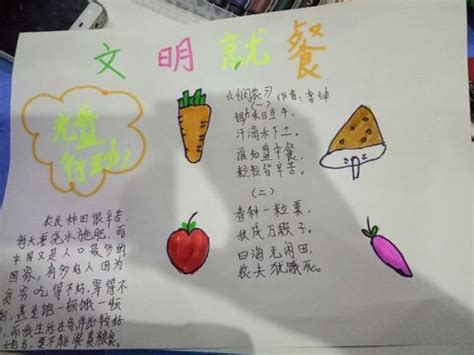 文明就餐
光盘
行动!
《悯农》作者:李绅
(一)
锄禾日当午,
汗滴禾下土。
谁知盘中餐,
粒粒皆辛苦。
(二)
春种一粒粟,
秋成万颗子。
四海无闲田,
农夫犹饿死。
农民种田很辛苦,
每天要浇水施肥,而
中国又是人口最多的
国家,有多少人因为
贫穷吃得不好,穿得不
好,甚至饱一顿饿一顿
而我生活在条件较好
更不能浪费粮食。